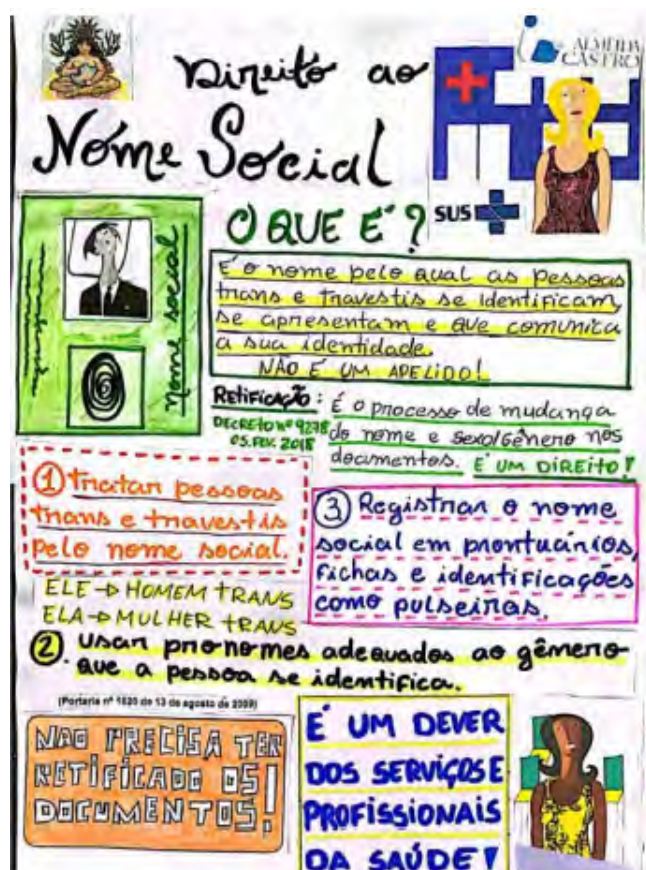 Direito ao
Nome Social
ALMEIDA
CASTRO
SUS
nome social
O QUE É?
É o nome pelo qual as pessoas
trans e travestis se identificam,
se apresentam e que comunica
a sua identidade.
NÃO É UM APELIDO!
Retificação: É o processo de mudança
DECRETO nº 9278
05.FEV. 2018
do nome e sexo/gênero nos
documentos. É UM DIREITO!
① Tratar pessoas
trans e travestis
pelo nome social.
ELE → HOMEM TRANS
ELA → MULHER TRANS
③ Registrar o nome
social em prontuários,
fichas e identificações
como pulseiras.
② Usar pronomes adequados ao gênero
que a pessoa se identifica.
(Portaria nº 1820 de 13 de agosto de 2009)
NÃO PRECISA TER
RETIFICADO OS
DOCUMENTOS!
É UM DEVER
DOS SERVIÇOS E
PROFISSIONAIS
DA SAÚDE!